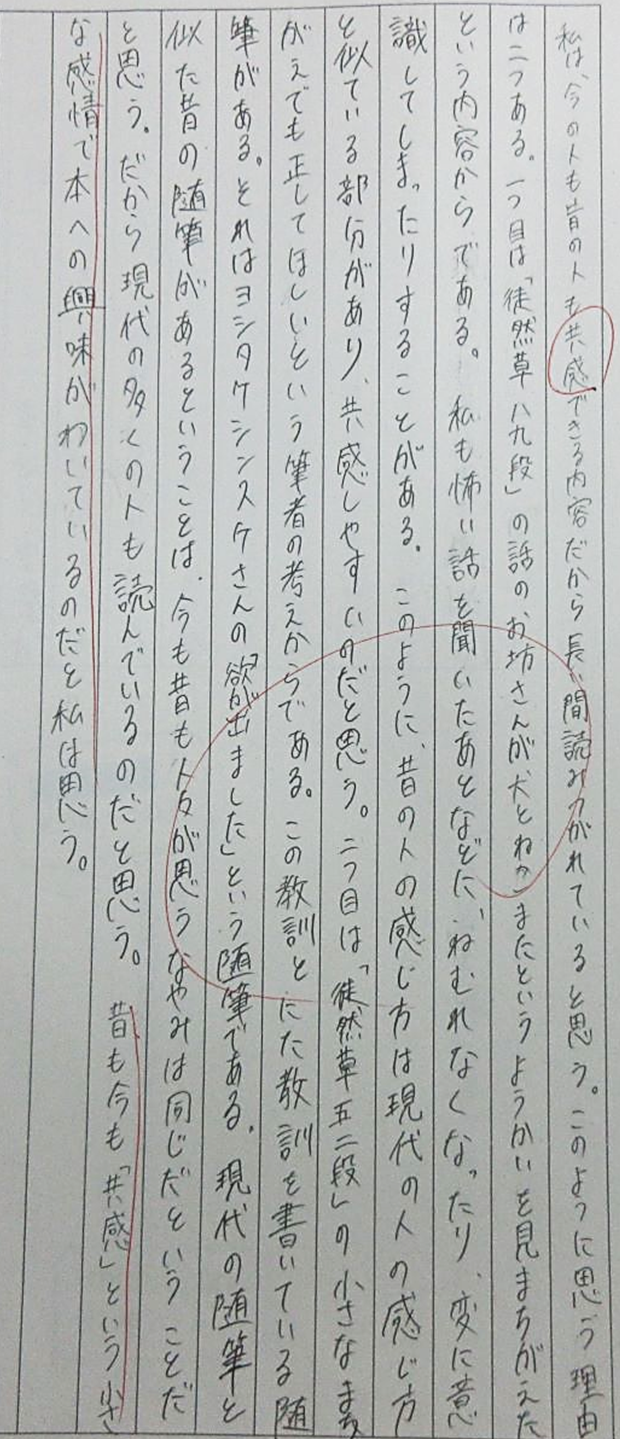 私は、今の人も昔の人も共感できる内容だから長い間読みつがれていると思う。このように思う理由
は二つある。一つ目は「徒然草八九段」の話のお坊さんが犬とねこまたというようかいを見まちがえた
という内容からである。私も怖い話を聞いたあとなどに、ねむれなくなったり、変に意
識してしまったりすることがある。このように、昔の人の感じ方は現代の人の感じ方
と似ている部分があり、共感しやすいのだと思う。二つ目は「徒然草五二段」の小さなまち
がえでも正してほしいという筆者の考えからである。この教訓とにた教訓を書いている随
筆がある。それはヨシタケシンスケさんの「欲が出ました」という随筆である。現代の随筆と
似た昔の随筆があるということは、今も昔も人々が思うなやみは同じだということだ
と思う。だから現代の多くの人も読んでいるのだと思う。昔も今も「共感」という小さ
な感情で本への興味がわいているのだと私は思う。